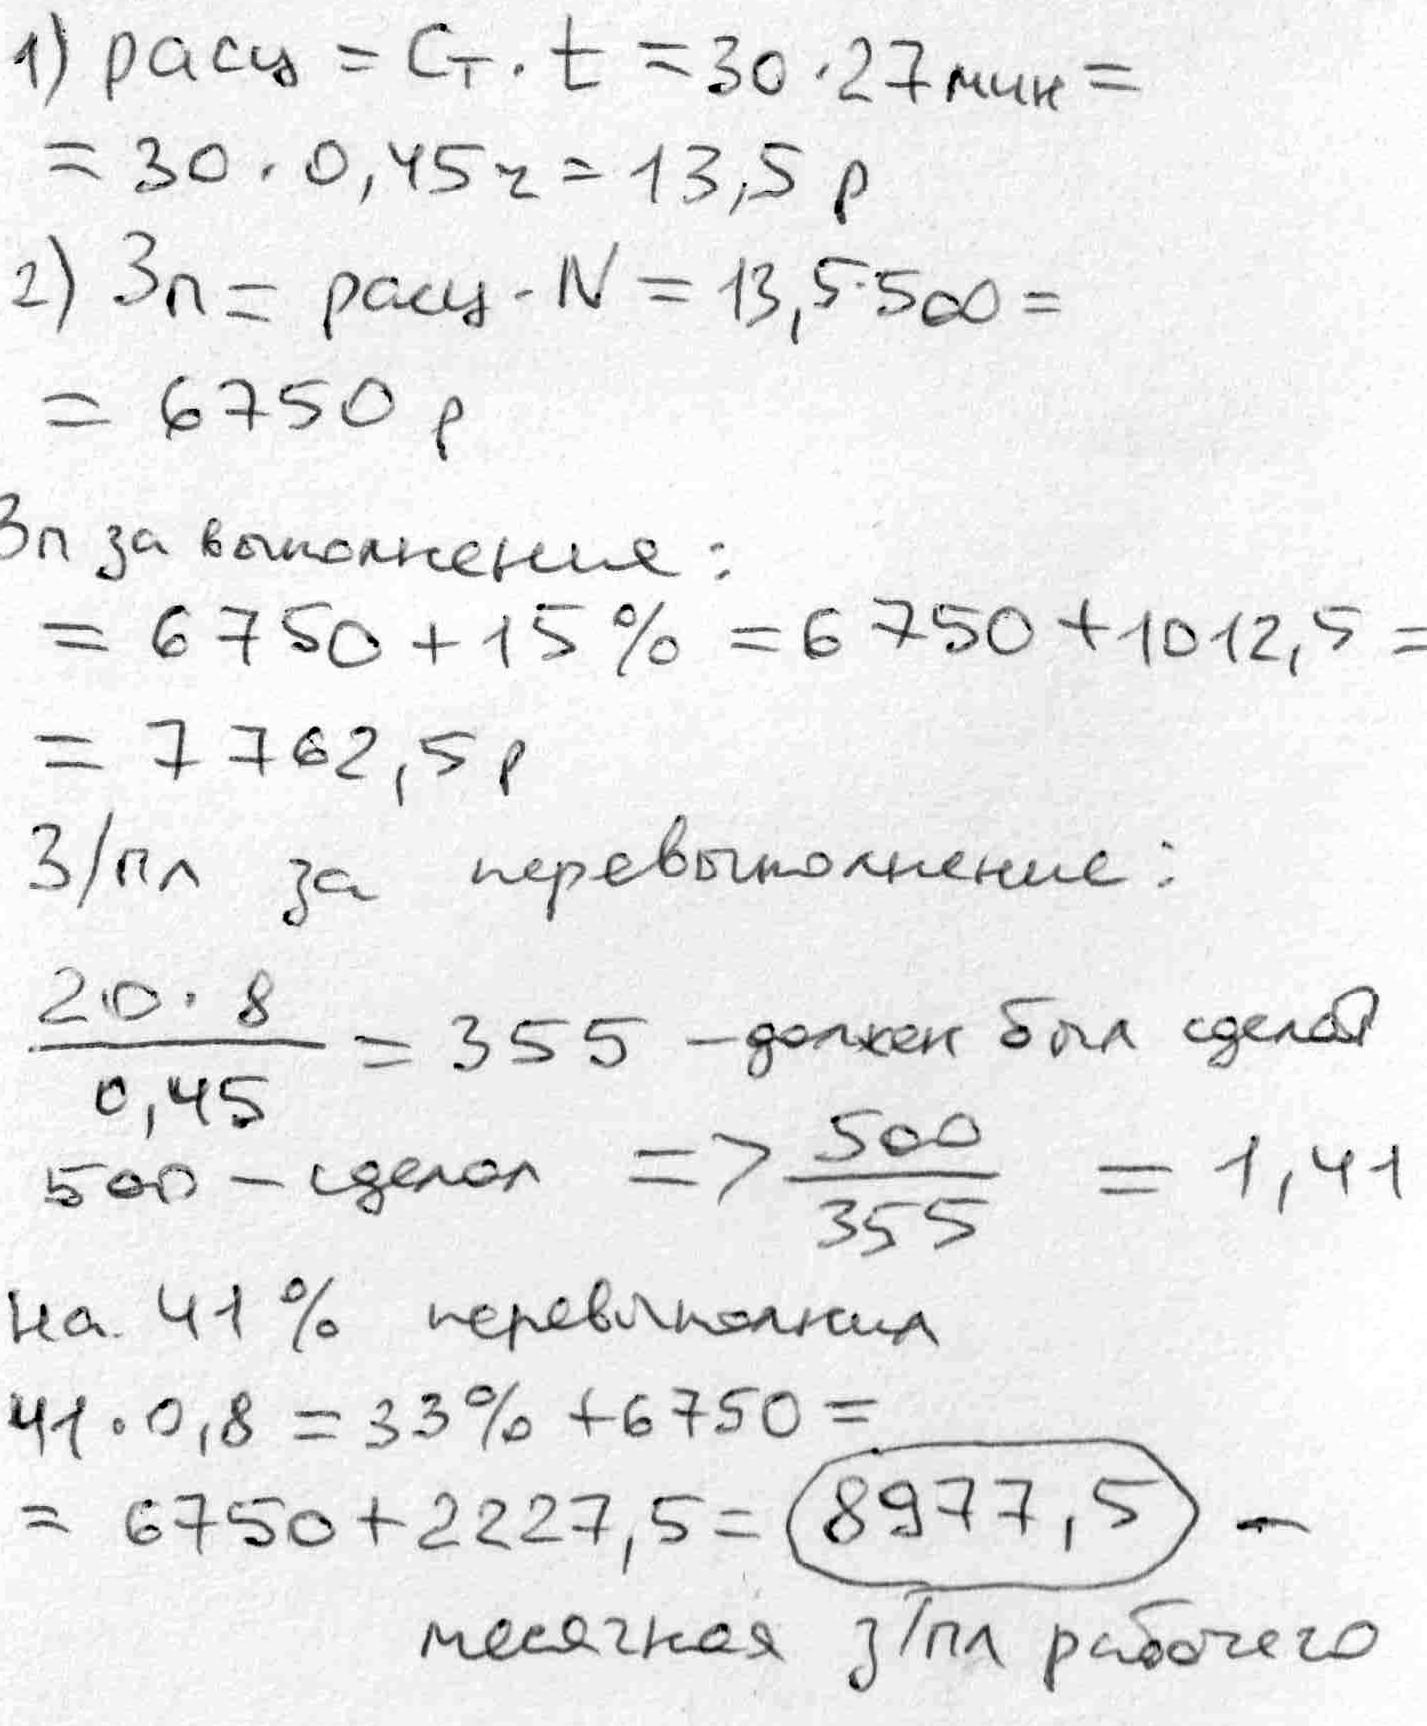 1) расц = Ст · t = 30 · 27 мин =
= 30 · 0,45 ч = 13,5 р
2) Зп = расц · N = 13,5 · 500 =
= 6750 р
Зп за выполнение:
= 6750 + 15% = 6750 + 1012,5 =
= 7762,5 р
З/пл за перевыполнение:
20 · 8 / 0,45 = 355 – должен был сделать
500 – сделал => 500 / 355 = 1,41
на 41% перевыполнил
41 · 0,8 = 33% + 6750 =
= 6750 + 2227,5 = 8977,5 –
месячная з/пл рабочего